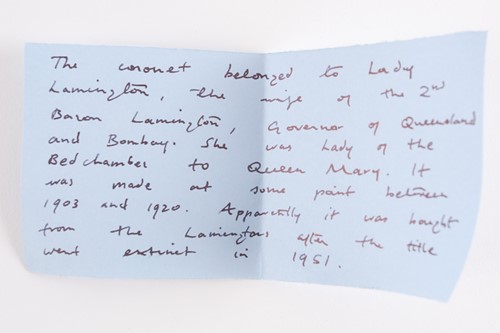 The coronet belonged to Lady
Lamington, the wife of the 2nd
Baron Lamington, Governor of Queensland
and Bombay. She was Lady of the
Bedchamber to Queen Mary. It
was made at some point between
1903 and 1920. Apparently it was bought
from the Lamingtons after the title
went extinct in 1951.